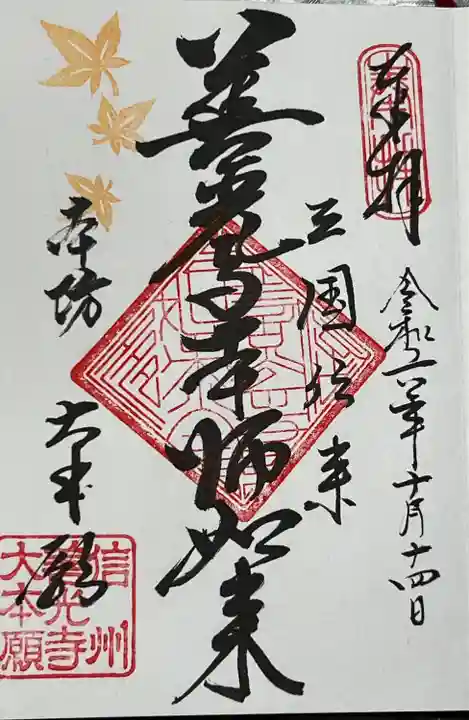 奉拝
令和六年十月十四日
三国伝来
善光寺本師如来
本坊 大本願
信州
善光寺
大本願